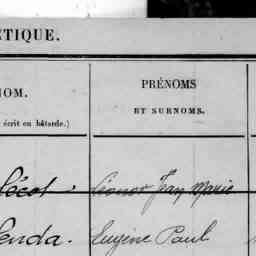 ÉTIQUE.
NOM.
PRÉNOMS
ET SURNOMS.
écrit en bâtarde.)
Léonor Jean Marie
enda. Eugène Paul